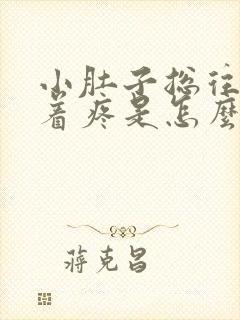 小肚子总往
着疼是怎麼
蒋克昌